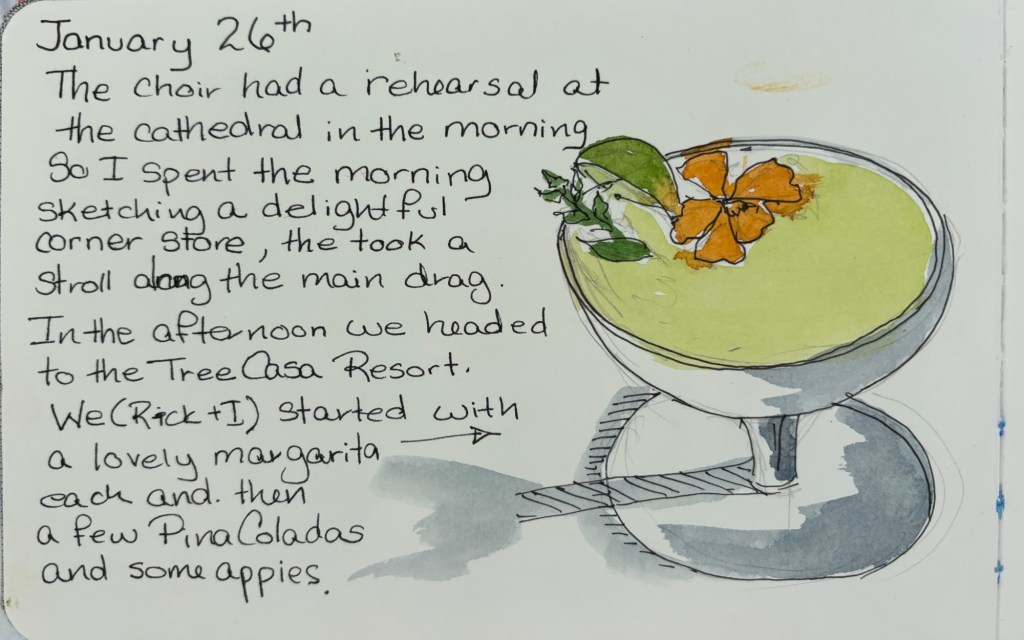 January 26th
The choir had a rehearsal at
the cathedral in the morning
So I spent the morning
sketching a delightful
corner store, the took a
stroll along the main drag.
In the afternoon we headed
to the Tree Casa Resort.
We (Rick + I) started with
a lovely margarita
each and. then
a few Pina Coladas
and some appies.